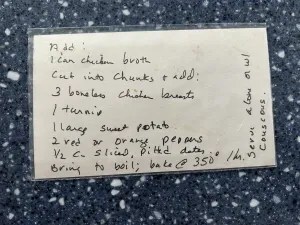 Add:
1 can chicken broth
Cut into chunks & add:
3 boneless chicken breasts
1 turnip
1 large sweet potato
2 red or orange peppers
1/2 c. sliced, pitted dates.
Bring to boil; bake @ 350° 1 hr.
Serve alone or w/
couscous.